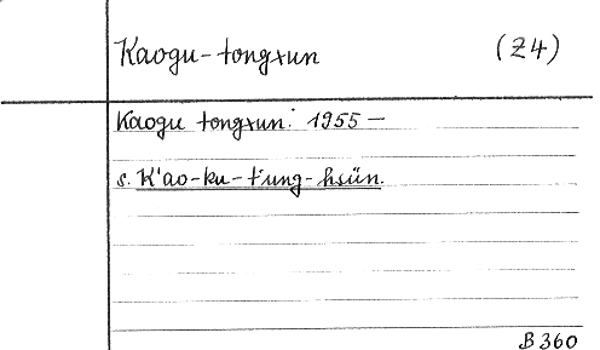 Kaogu-tongxun (Z4)
Kaogu tongxun: 1955 —
s. K'ao-ku-t'ung-hsün.
B 360